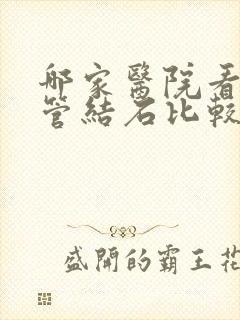 哪家醫院看
管結石比較
盛開的霸王花